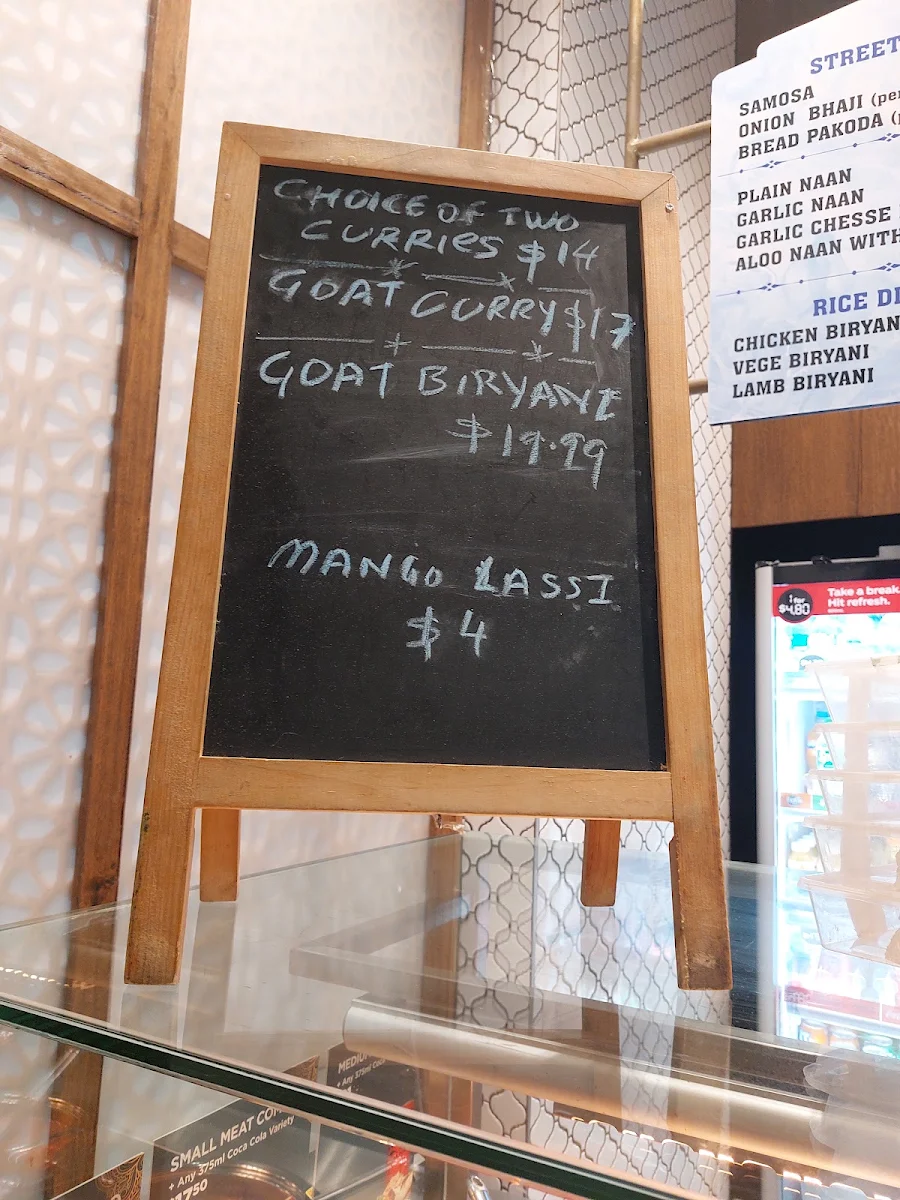 CHOICE OF TWO
CURRIES $14
GOAT CURRY $17
GOAT BIRYANI
$19.99
MANGO LASSI
$4
STREET
SAMOSA
ONION BHAJI (per
BREAD PAKODA
PLAIN NAAN
GARLIC NAAN
GARLIC CHESSE
ALOO NAAN WITH
RICE DI
CHICKEN BIRYAN
VEGE BIRYANI
LAMB BIRYANI
1 for
$4.80
Take a break.
Hit refresh.
MEDIU
+ Any 375ml Coca
SMALL MEAT COM
+ Any 375ml Coca Cola Variety
$17.50